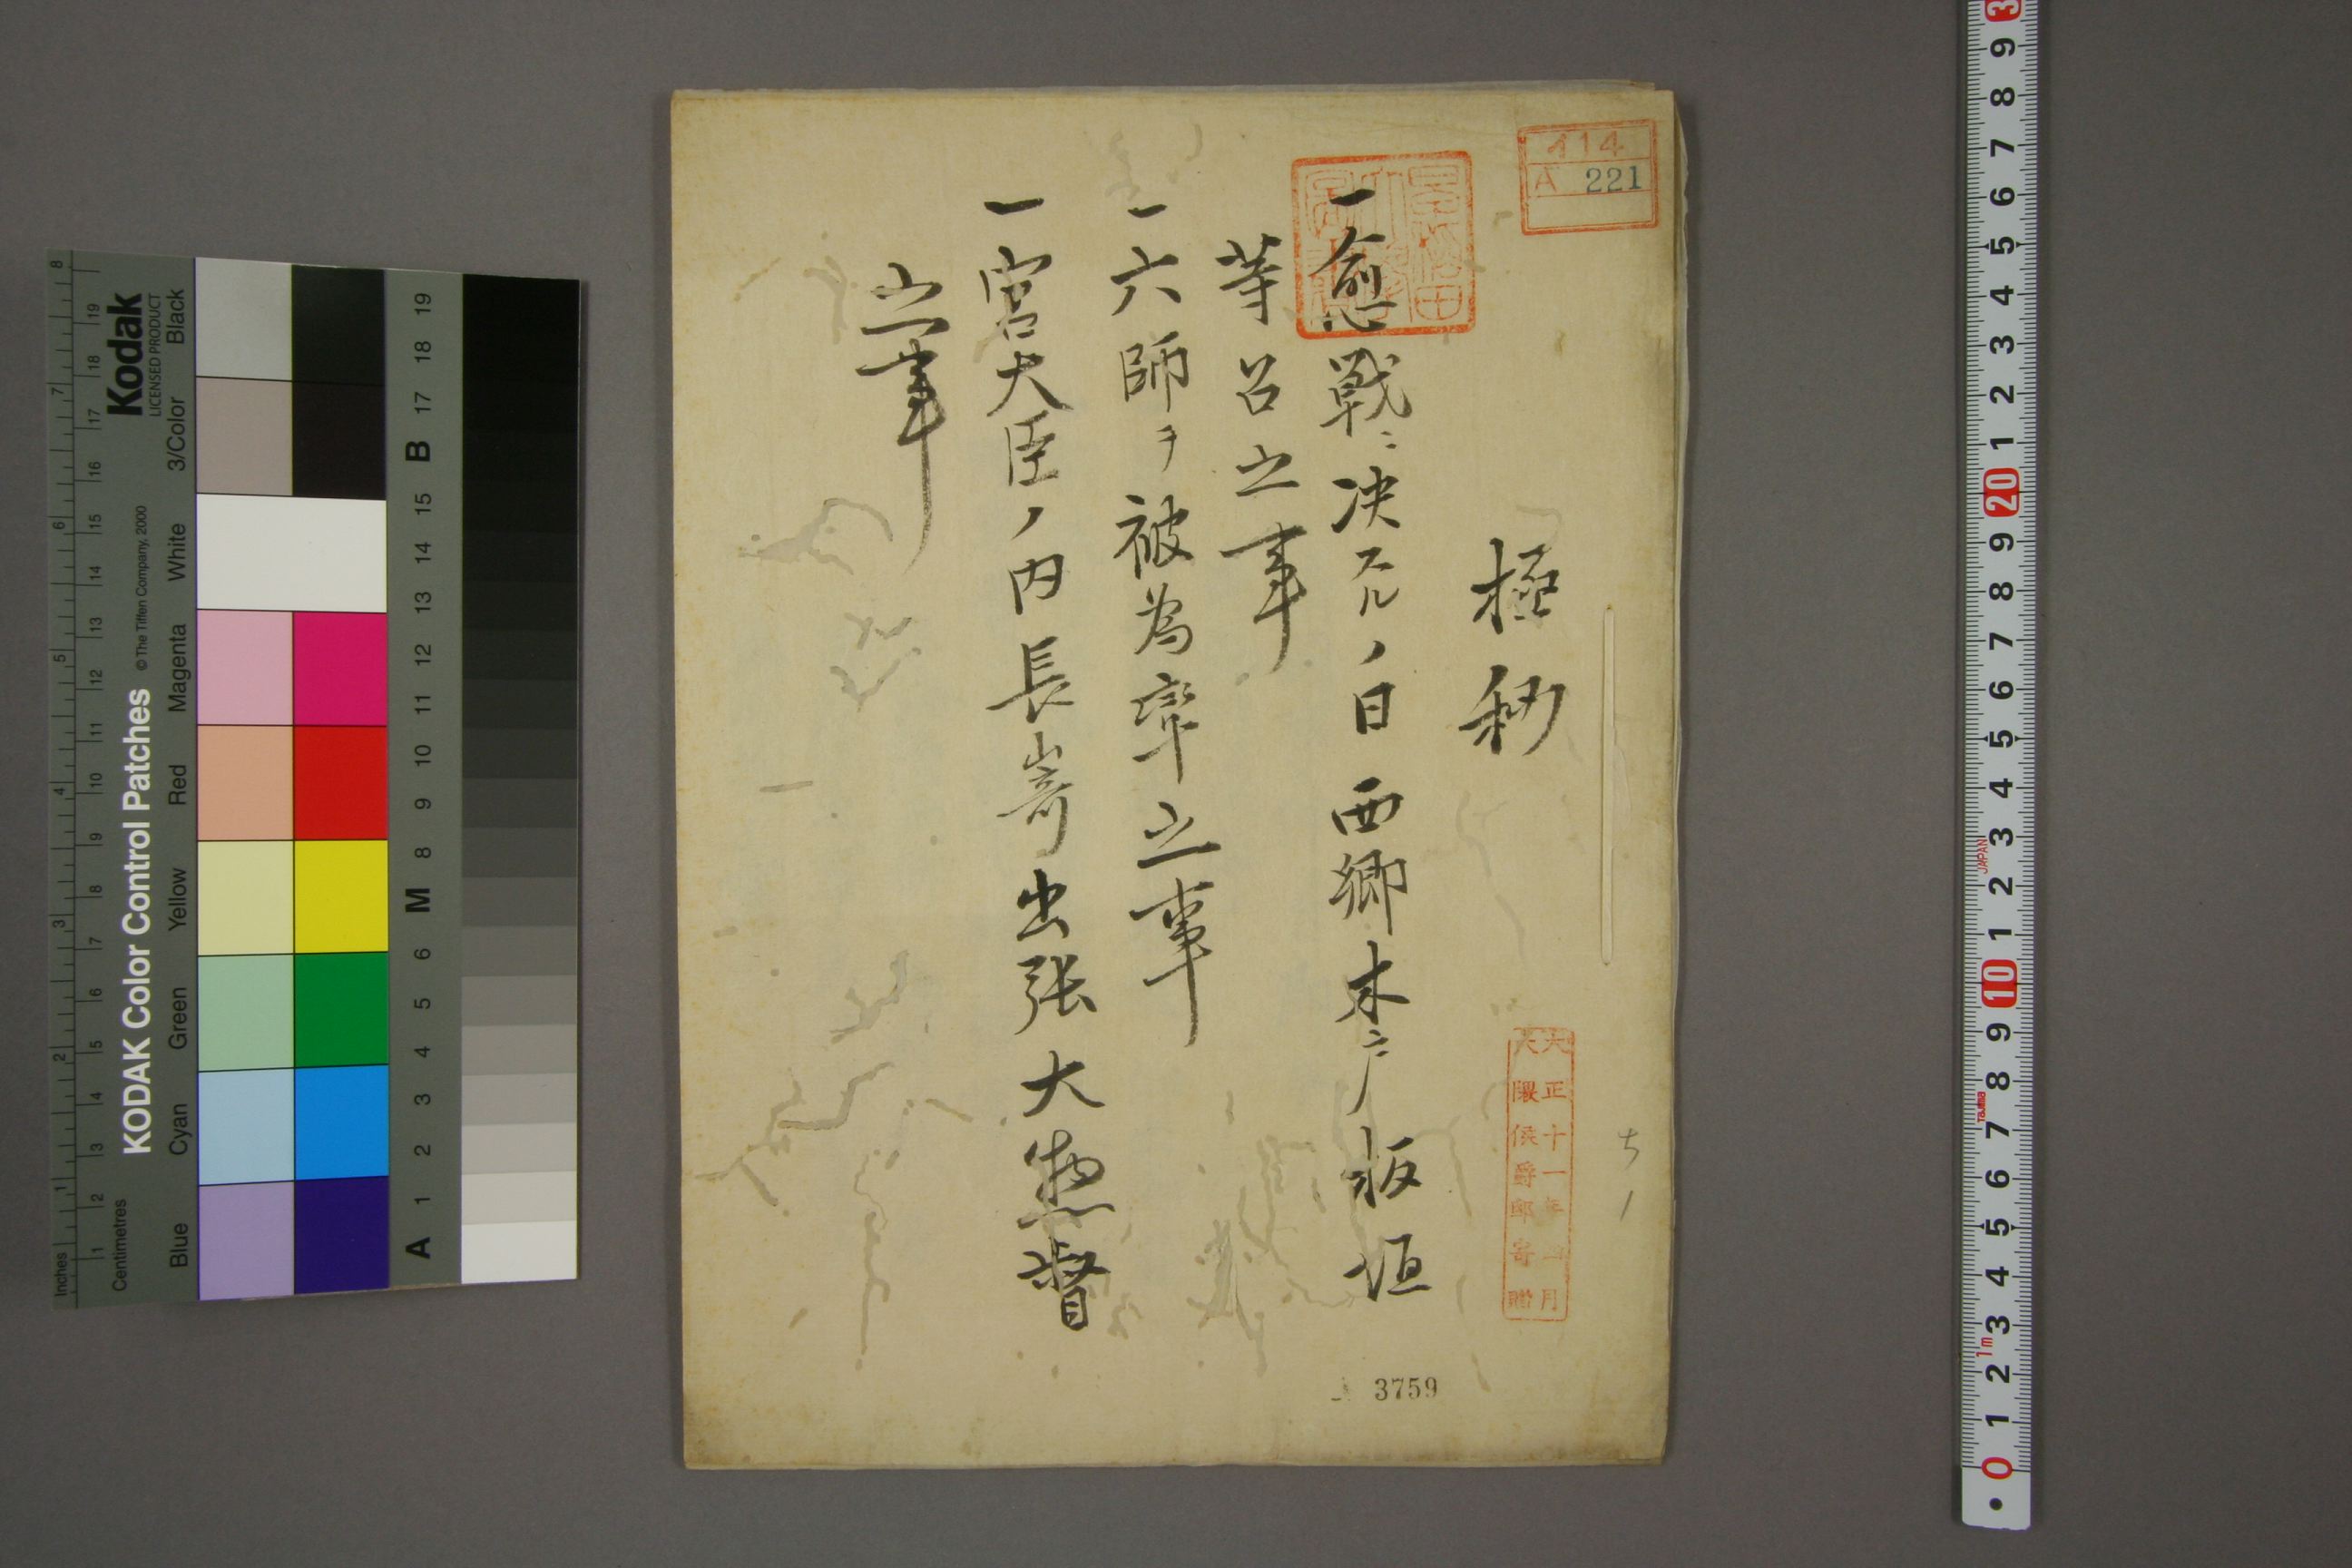 極秘
一愈戦ニ决スルノ日西郷木戸板垣
等召之事
一六師ヲ被為率之事
一宮大臣ノ内長嵜出張大惣督
之事
イ14
A 221
大正十一年 月
大隈侯爵邸寄贈
ち1
3759
KODAK Color Control Patches
© The Tiffen Company, 2000
Kodak
LICENSED PRODUCT
Inches
Centimetres
Blue Cyan Green Yellow Red Magenta White 3/Color Black
A 1 2 3 4 5 6 M 8 9 10 11 12 13 14 15 B 17 18 19
JAPAN
Tajima
1m